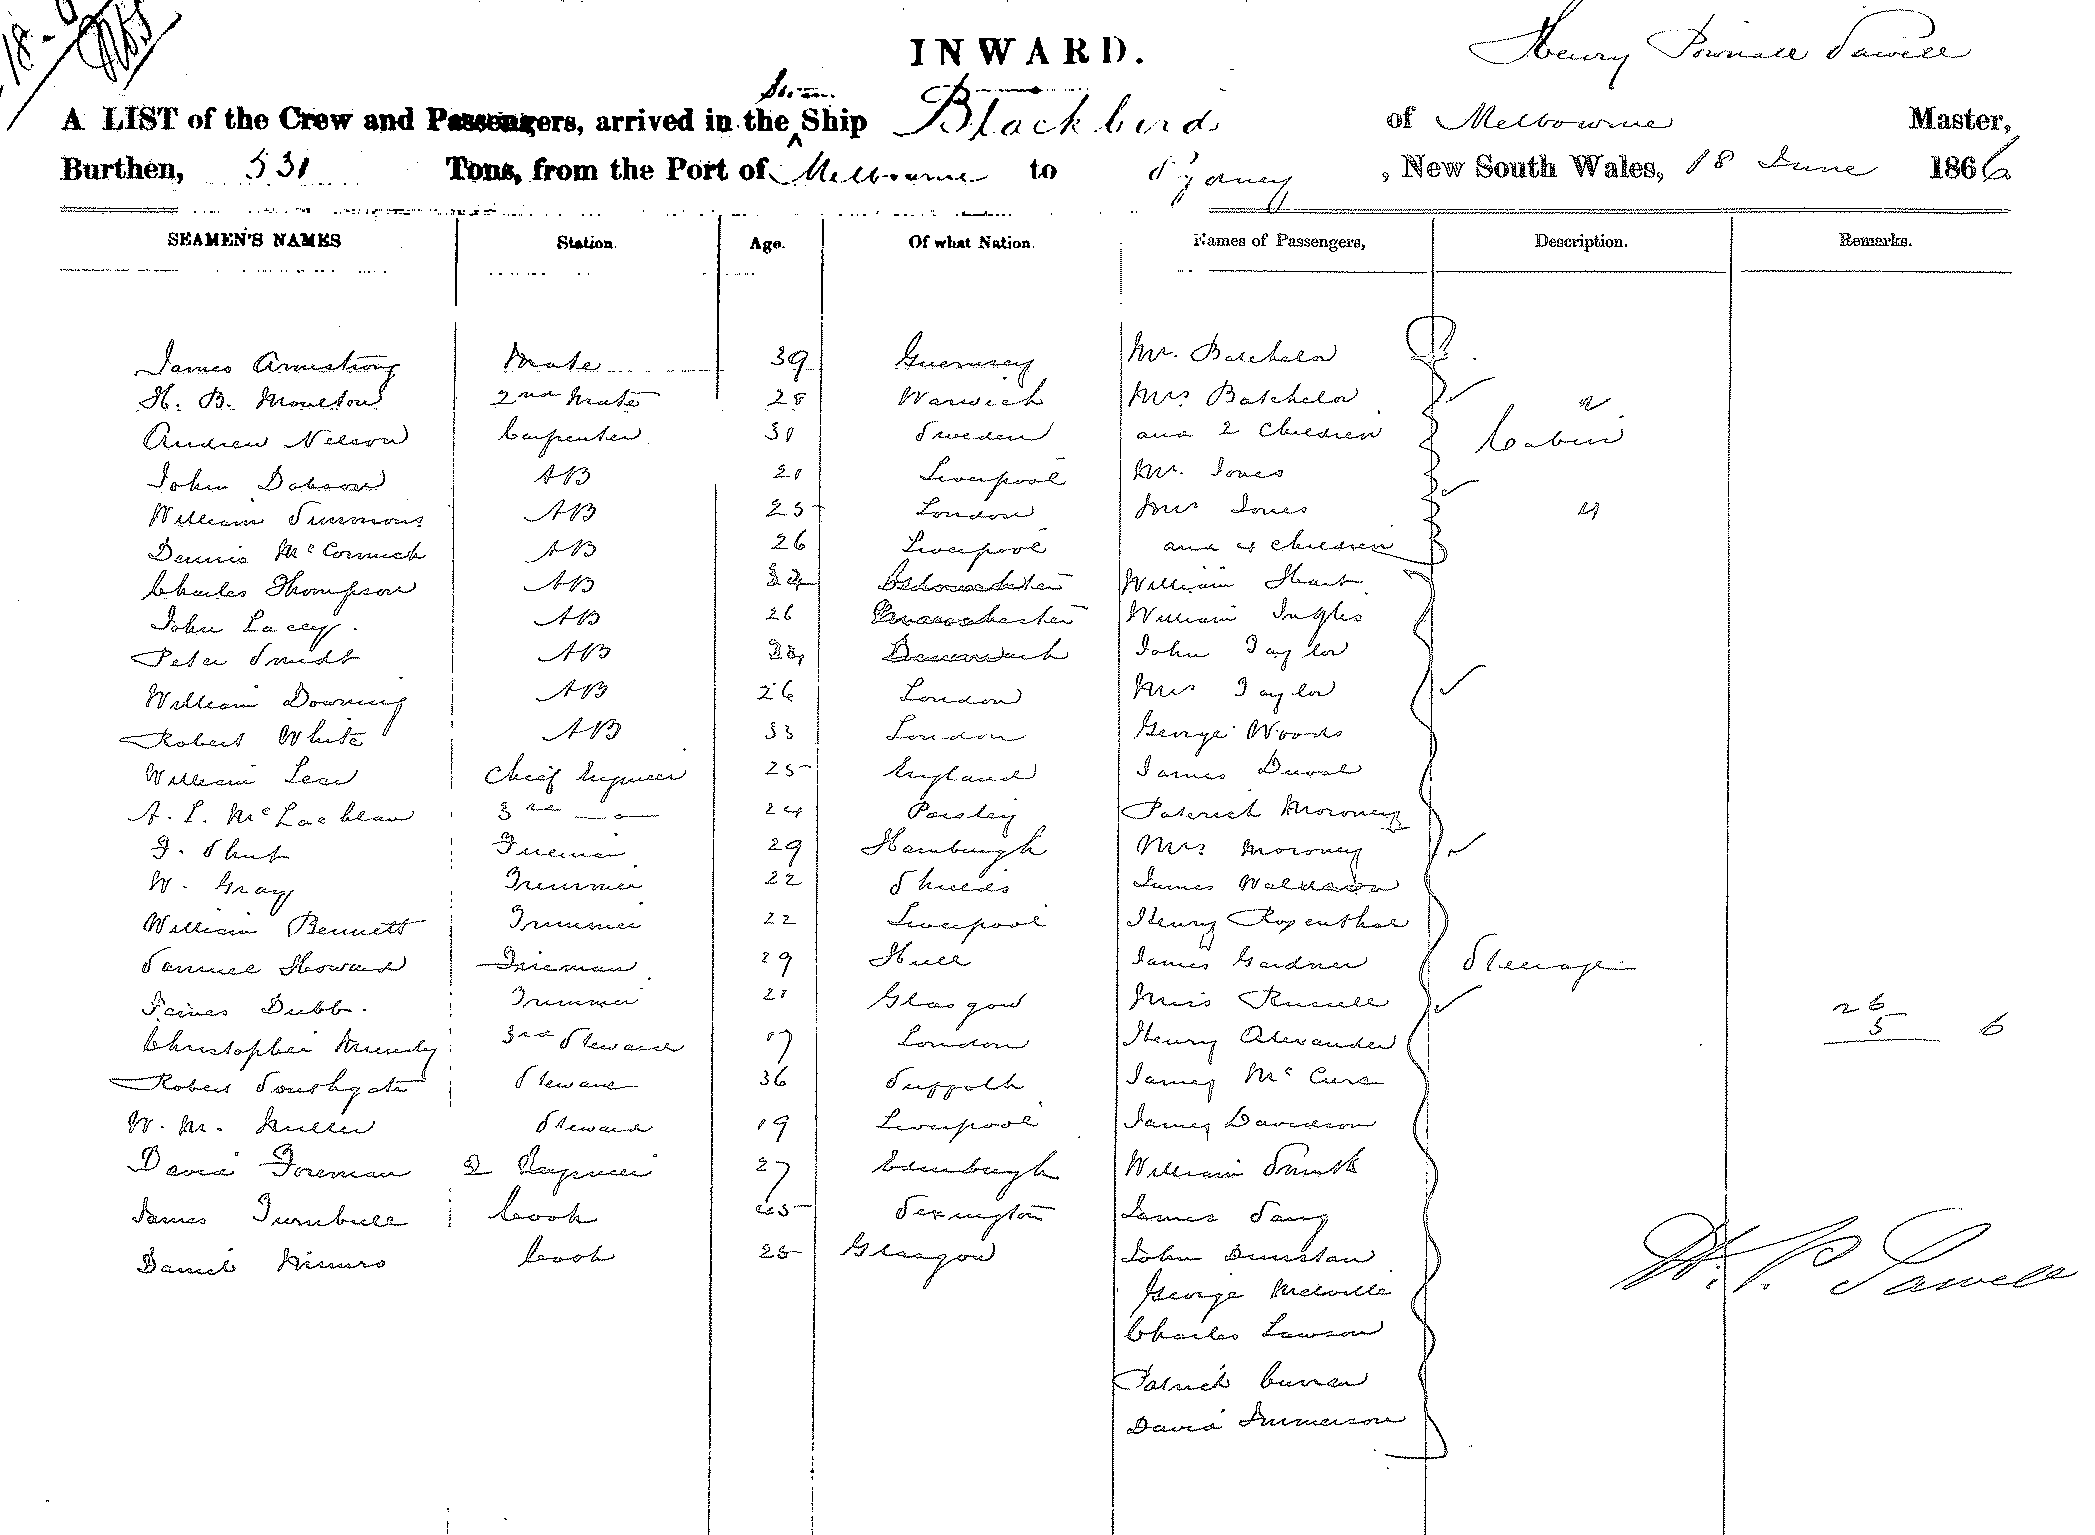 18-
INWARD.
Henry Pownall Sawell
Steam
A LIST of the Crew and Passengers, arrived in the Ship Blackbird of Melbourne Master,
Burthen, 531 Tons, from the Port of Melbourne to Sydney, New South Wales, 18 June 1866
SEAMEN'S NAMES Station Age. Of what Nation. Names of Passengers, Description. Remarks.
James Armstrong Mate 39 Guernsey Mr. Batchelor
H. B. Moulton 2nd Mate 28 Warwick Mrs Batchelor
Andrew Nelson Carpenter 31 Sweden and 2 Children Cabin
John Dobson AB 21 Liverpool Mr. Jones
William Simmons AB 25 London Mrs Jones 4
Dennis McCormick AB 26 Liverpool and 4 children
Charles Thompson AB William Hart
John Lacey. AB 26 Manchester William Inglis
Peter Smidt AB Denmark John Taylor
William Downing AB 26 London Mrs Taylor
Robert White AB 33 London George Woods
William Lear Chief Engineer 25 England James Duval
A. L. McLachlan 3rd —o— 24 Paisley Patrick Moroney
F. Shut Fireman 29 Hamburgh Mrs Moroney
W. Gray Trimmer 22 Shields James Waldron
William Bennett Trimmer 22 Liverpool Henry Rosenthal
Samuel Howard Fireman 29 Hull James Gardner Steerage
James Dubb. Trimmer 21 Glasgow Miss Russell 26
Christopher Munday 3rd Steward 17 London Henry Alexander 5 6
Robert Southgate Steward 36 Suffolk James McCure
W. M. Miller Steward 19 Liverpool James Davidson
David Foreman 2 Engineer 27 Edinburgh William Smith
James Turnbull Cook James
Daniel Munro Cook 25 Glasgow John Dunstan
George Melville
Charles Lawson
Patrick Curran
David
H. P. Sawell